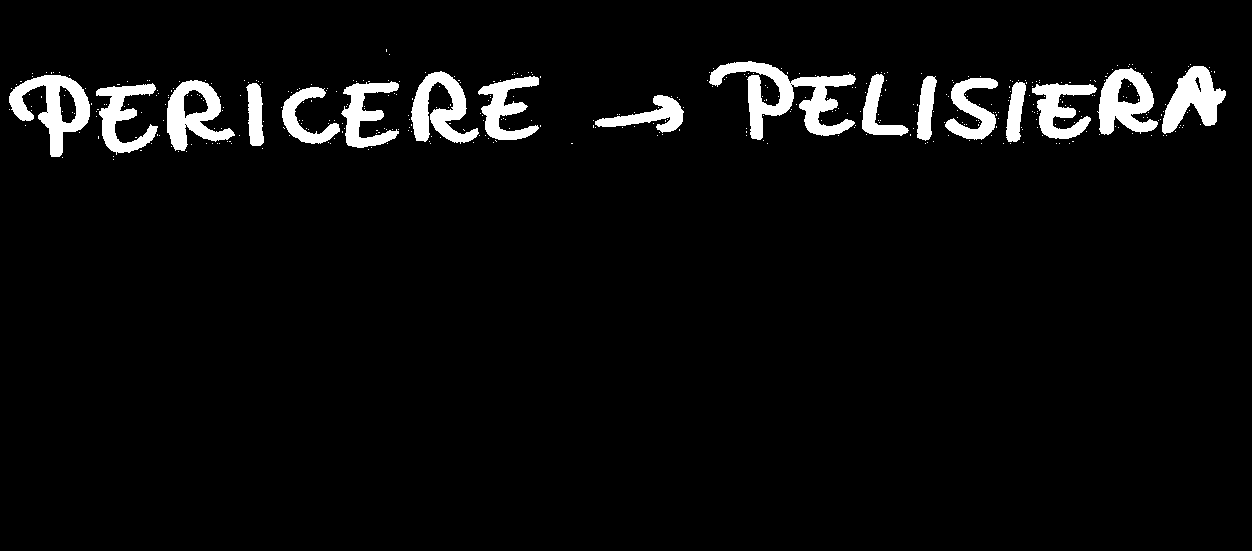 PERICERE → PELISIERA